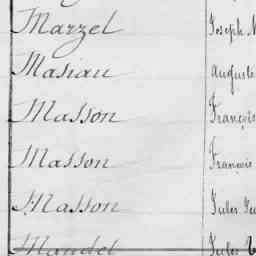 Marzel Joseph
Masian Auguste
Masson François
Masson François
Masson Jules
Mandel Jules